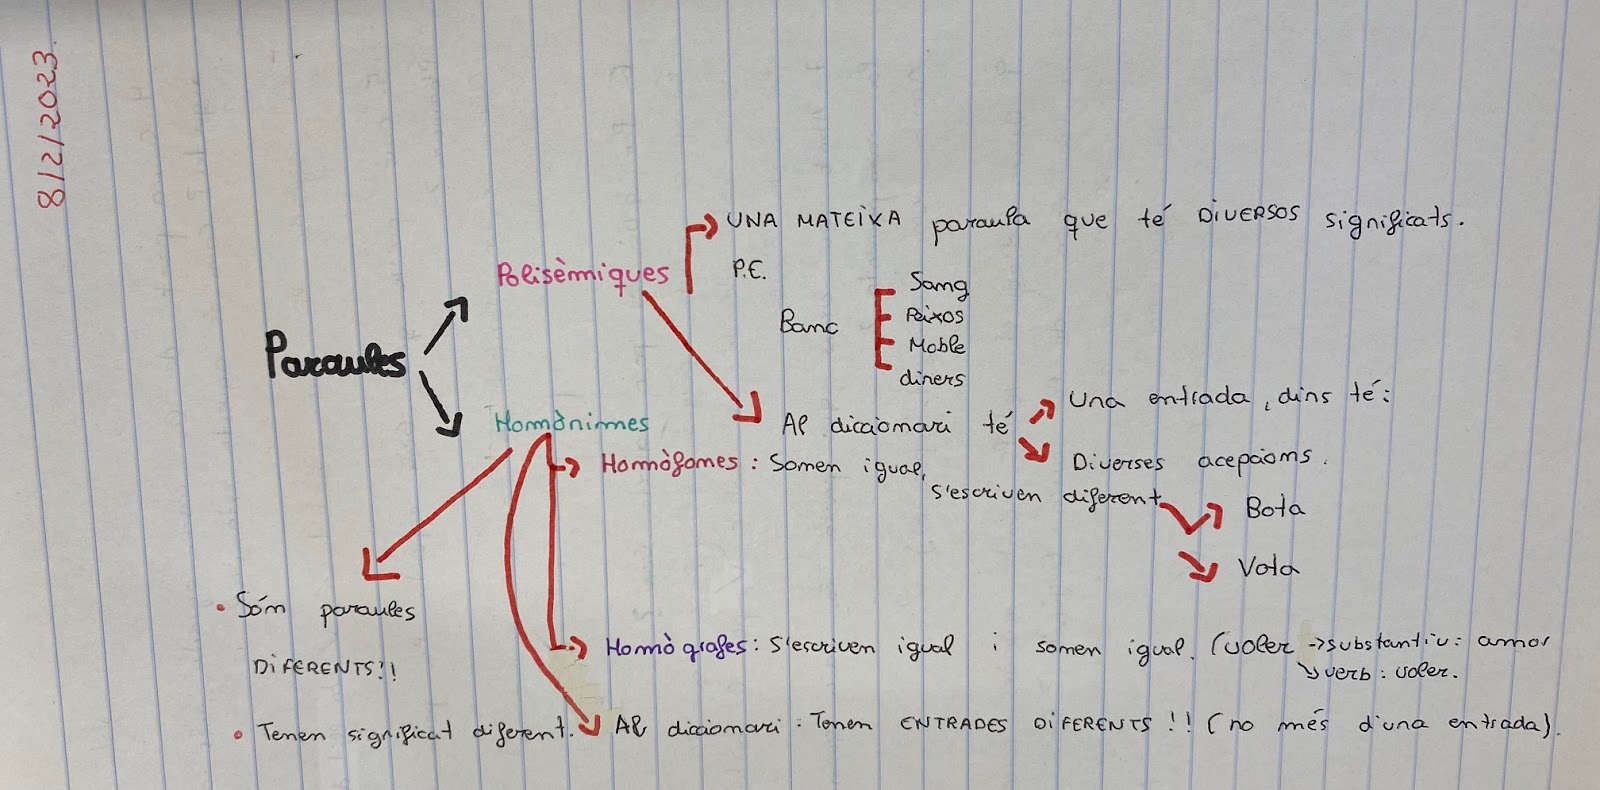 8/2/2023.
UNA MATEIXA paraula que té DIVERSOS significats.
Polisèmiques
P.E.
Banc
Sang
Peixos
Moble
diners
Paraules
Al diccionari té
Una entrada, dins té:
Diverses acepcions.
Homònimes
Homòfones: Sonen igual,
s'escriven diferent
Bota
Vota
• Són paraules
DIFERENTS!!
Homògrafes: S'escriven igual i sonen igual. (voler → substantiu: amor
↘ verb: voler.
• Tenen significat diferent.
Al diccionari: Tenen ENTRADES DIFERENTS!! (no més d'una entrada).